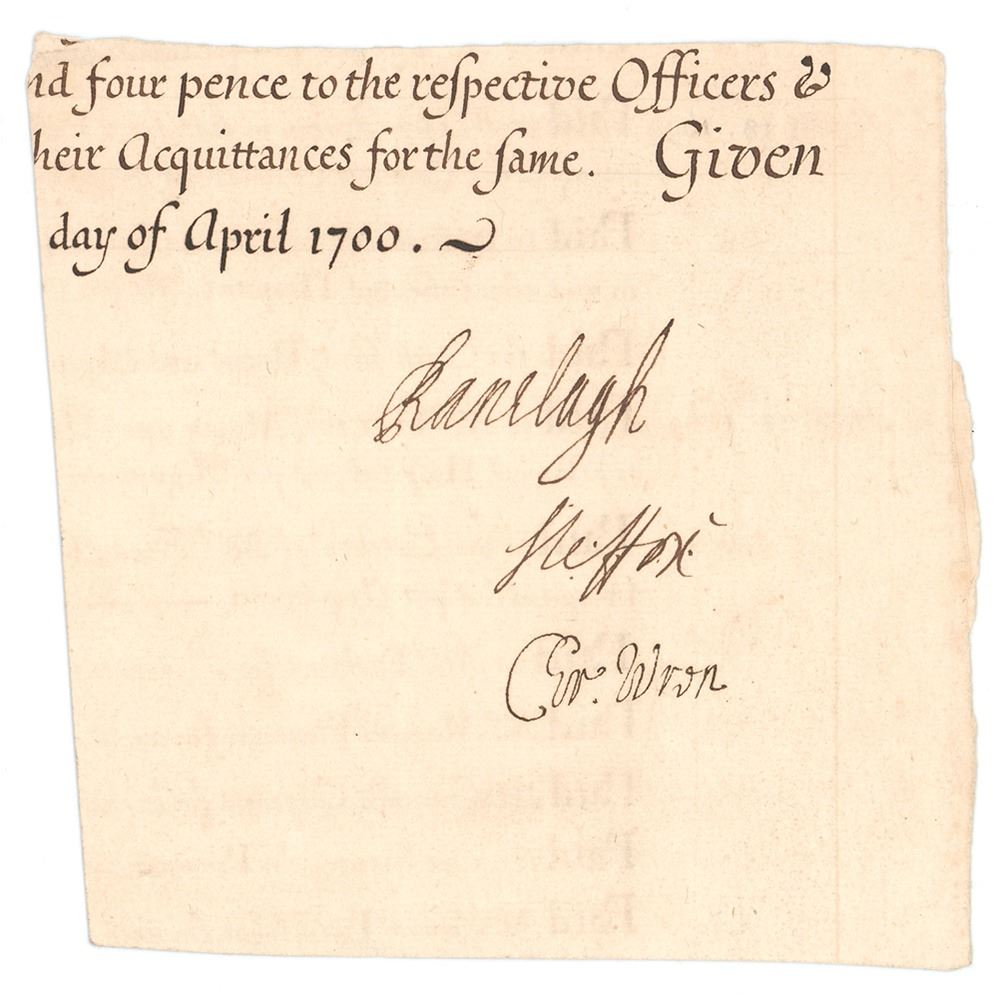 nd four pence to the reſpective Officers &
heir Acquittances for the ſame. Given
day of April 1700.
Ranelagh
Ste: ffox
Chr: Wren